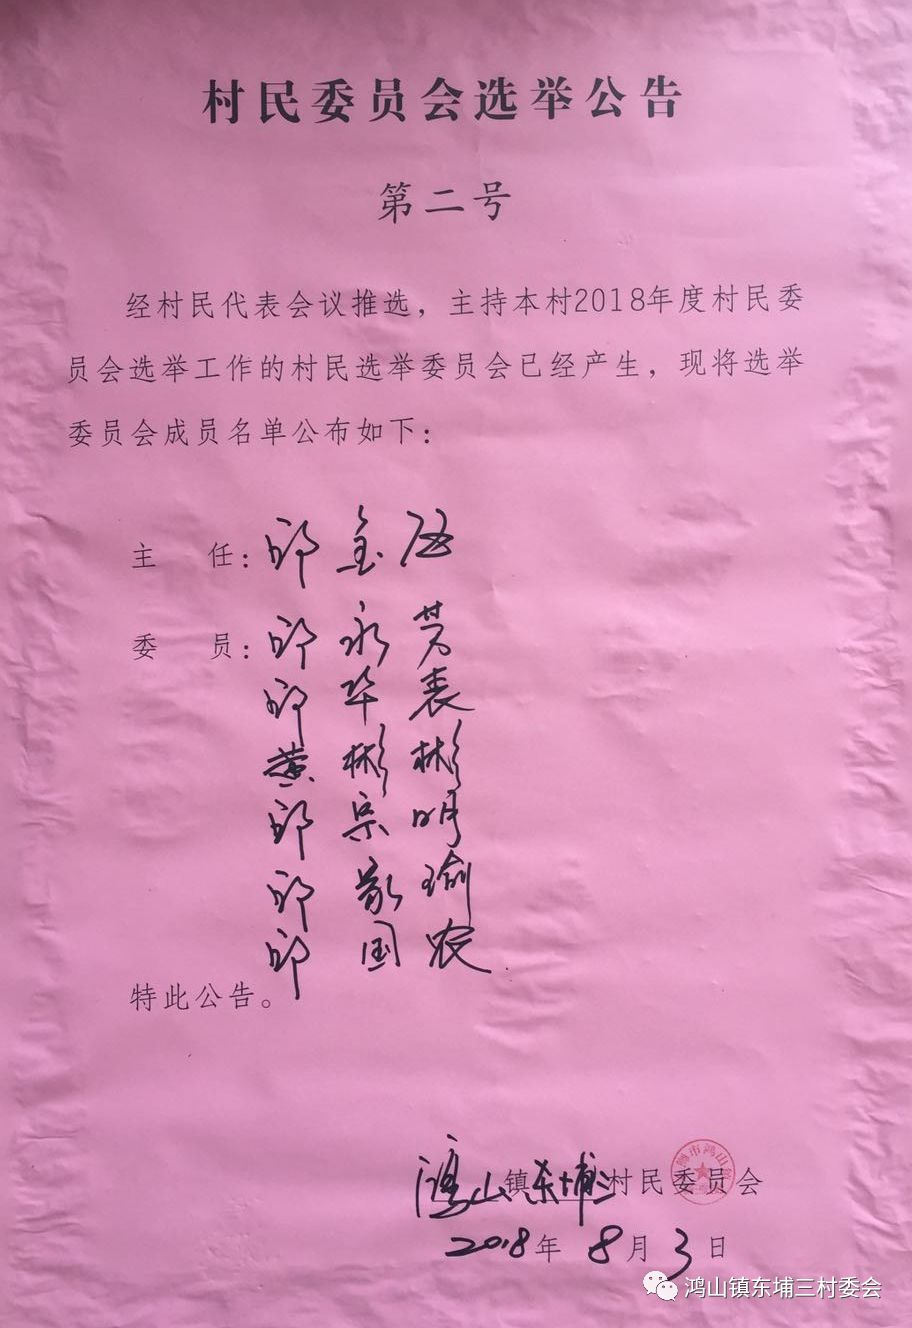 村民委员会选举公告
第二号
经村民代表会议推选，主持本村2018年度村民委
员会选举工作的村民选举委员会已经产生，现将选举
委员会成员名单公布如下：
主 任：邱金
委 员：邱永芳
邱华表
黄彬彬
邱宗明
邱家瑜
邱国农
特此公告。
鸿山镇东埔三村民委员会
2018年8月3日
市鸿山
鸿山镇东埔三村委会